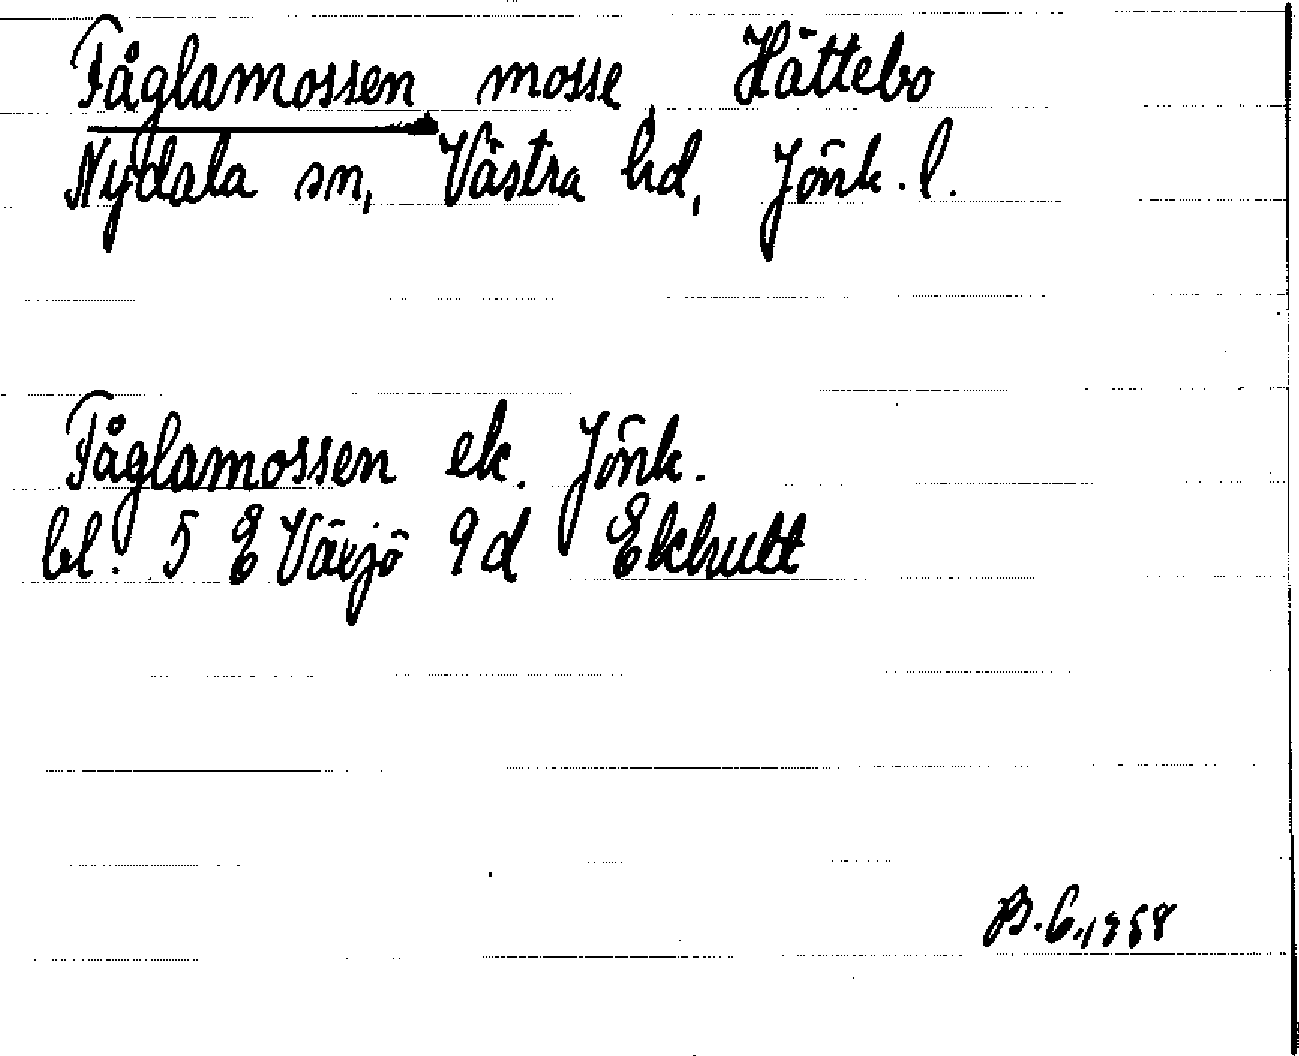 Fåglamossen mosse, Hättebo
Nydala sn, Västra hd, Jönk. l.
Fåglamossen ek. Jönk.
bl. 5 E Växjö 9d Ekhult
B. E. 1958